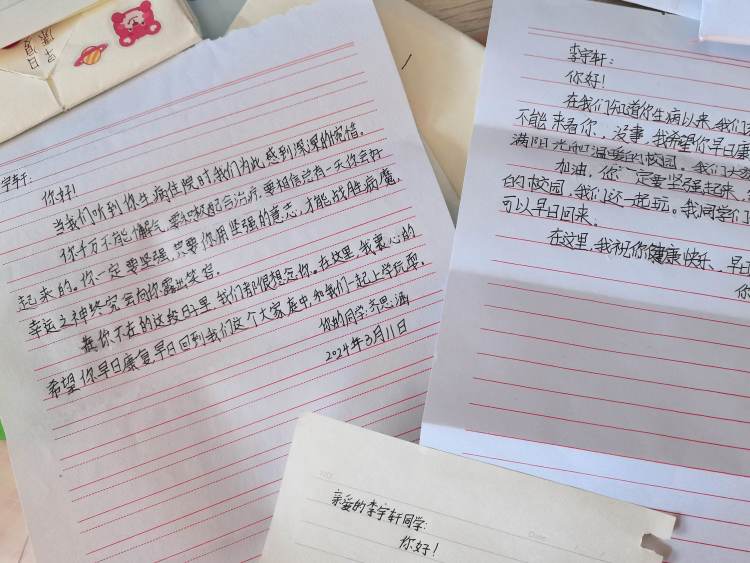 早日
康复
宇轩:
你好!
当我们听到你生病住院时我们为此感到深深的惋惜。
你千万不能懈气,要积极配合治疗,要相信总有一天你会好
起来的。你一定要坚强,只要你用坚强的意志,才能战胜病魔,
幸运之神终究会向你露出笑容。
在你不在的这段日里,我们都很想念你。在这里,我衷心的
希望你早日康复早日回到我们这个大家庭中和我们一起上学玩耍。
你的同学:齐思涵
2024年3月11日
李宇轩:
你好!
在我们知道你生病以来,我们
不能来看你,没事,我希望你早日康
满阳光和温暖的校园,我们大家
加油,你一定要坚强起来,
的校园,我们还一起玩。我同学们
可以早日回来。
在这里,我祝你健康快乐,早日
亲爱的李宇轩同学:
你好!